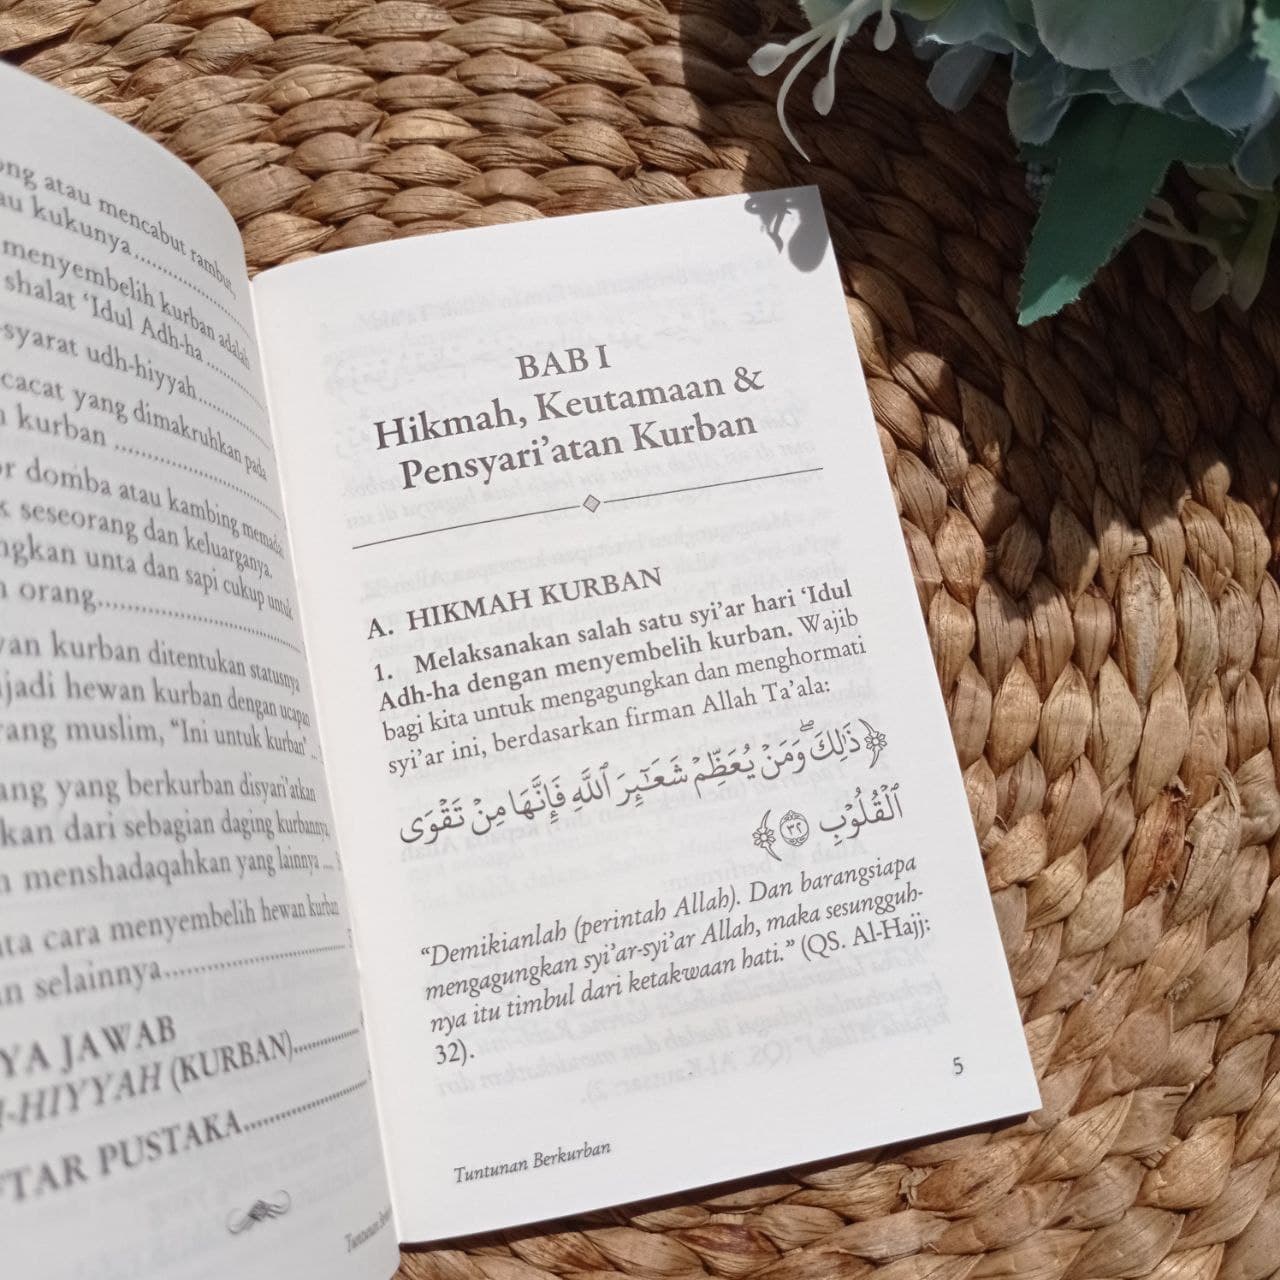 ong atau mencabut rambut,
au kukunya
menyembelih kurban adalah
shalat ‘Idul Adh-ha
-syarat udh-hiyyah
cacat yang dimakruhkan pada
kurban
or domba atau kambing memadai
k seseorang dan keluarganya.
ngkan unta dan sapi cukup untuk
orang
wan kurban ditentukan statusnya
njadi hewan kurban dengan ucapan
rang muslim, “Ini untuk kurban”
ang yang berkurban disyari’atkan
kan dari sebagian daging kurbannya,
menshadaqahkan yang lainnya
ata cara menyembelih hewan kurban
an selainnya
YA JAWAB
H-HIYYAH (KURBAN)
TAR PUSTAKA
BAB I
Hikmah, Keutamaan &
Pensyari’atan Kurban
A. HIKMAH KURBAN
1. Melaksanakan salah satu syi’ar hari ‘Idul
Adh-ha dengan menyembelih kurban. Wajib
bagi kita untuk mengagungkan dan menghormati
syi’ar ini, berdasarkan firman Allah Ta’ala:
﴿ذَٰلِكَۖ وَمَنْ يُعَظِّمْ شَعَـٰٓئِرَ ٱللَّهِ فَإِنَّهَا مِنْ تَقْوَى
ٱلْقُلُوْبِ ٣٢﴾
“Demikianlah (perintah Allah). Dan barangsiapa
mengagungkan syi’ar-syi’ar Allah, maka sesungguh-
nya itu timbul dari ketakwaan hati.” (QS. Al-Hajj:
32).
5
Tuntunan Berkurban